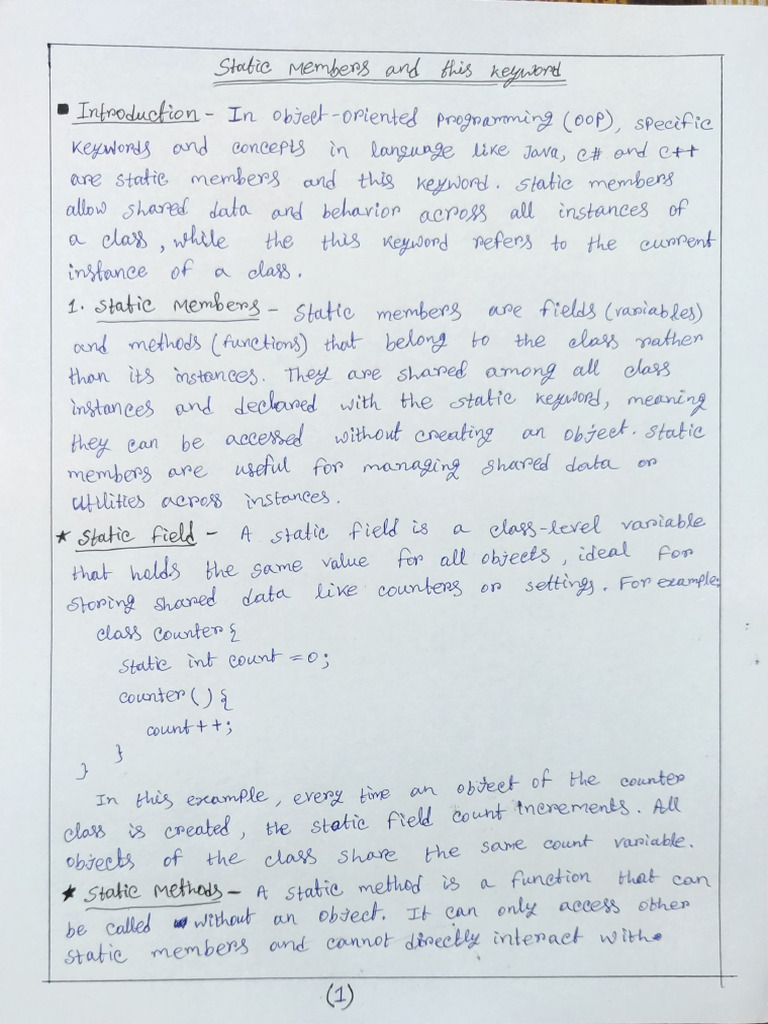 Static Members and this keyword
Introduction - In object-oriented programming (OOP), specific
keywords and concepts in language like Java, C# and C++
are static members and this keyword. Static members
allow shared data and behavior across all instances of
a class, while the this keyword refers to the current
instance of a class.
1. Static Members - Static members are fields (variables)
and methods (functions) that belong to the class rather
than its instances. They are shared among all class
instances and declared with the static keyword, meaning
they can be accessed without creating an object. Static
members are useful for managing shared data or
utilities across instances.
★ Static Field - A static field is a class-level variable
that holds the same value for all objects, ideal for
storing shared data like counters or settings. For example:
class counter{
static int count = 0;
counter() {
count++;
}
}
In this example, every time an object of the counter
class is created, the static field count increments. All
objects of the class share the same count variable.
★ Static Methods - A static method is a function that can
be called without an object. It can only access other
static members and cannot directly interact with
(1)